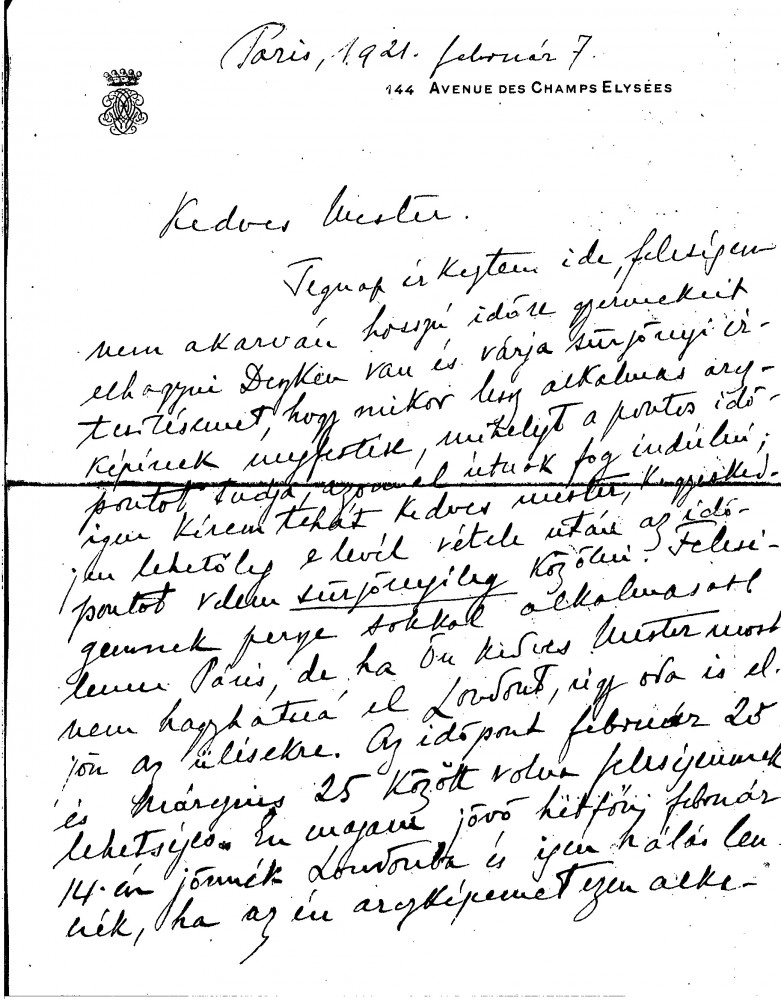 Paris, 1921. február 7.
144 AVENUE DES CHAMPS ELYSÉES
Kedves Mester.
Tegnap érkeztem ide, feleségem
nem akarván hosszú időre gyermekeit
elhagyni Deszken van és várja sürgönyi ér-
tesitésemet, hogy mikor lesz alkalmas arcz-
képének megfestése, mihelyt a pontos idő-
pontot tudja, azonnal útnak fog indúlni;
igen kérem tehát kedves mester, kegyesked-
jen lehetőleg e levél vétele után az idő-
pontot velem sürgönyileg közölni. Felesé-
gemnek persze sokkal alkalmasabb
lenne Páris, de ha Ön kedves Mester most
nem hagyhatná el Londont, úgy oda is el-
jön az ülésekre. Az időpont február 25
és Márczius 25 között volna feleségemnek
lehetséges. Én magam jövő hétfőn, február
14-én jönnék Londonba és igen hálás len-
nék, ha az én arczképemet ezen alka-